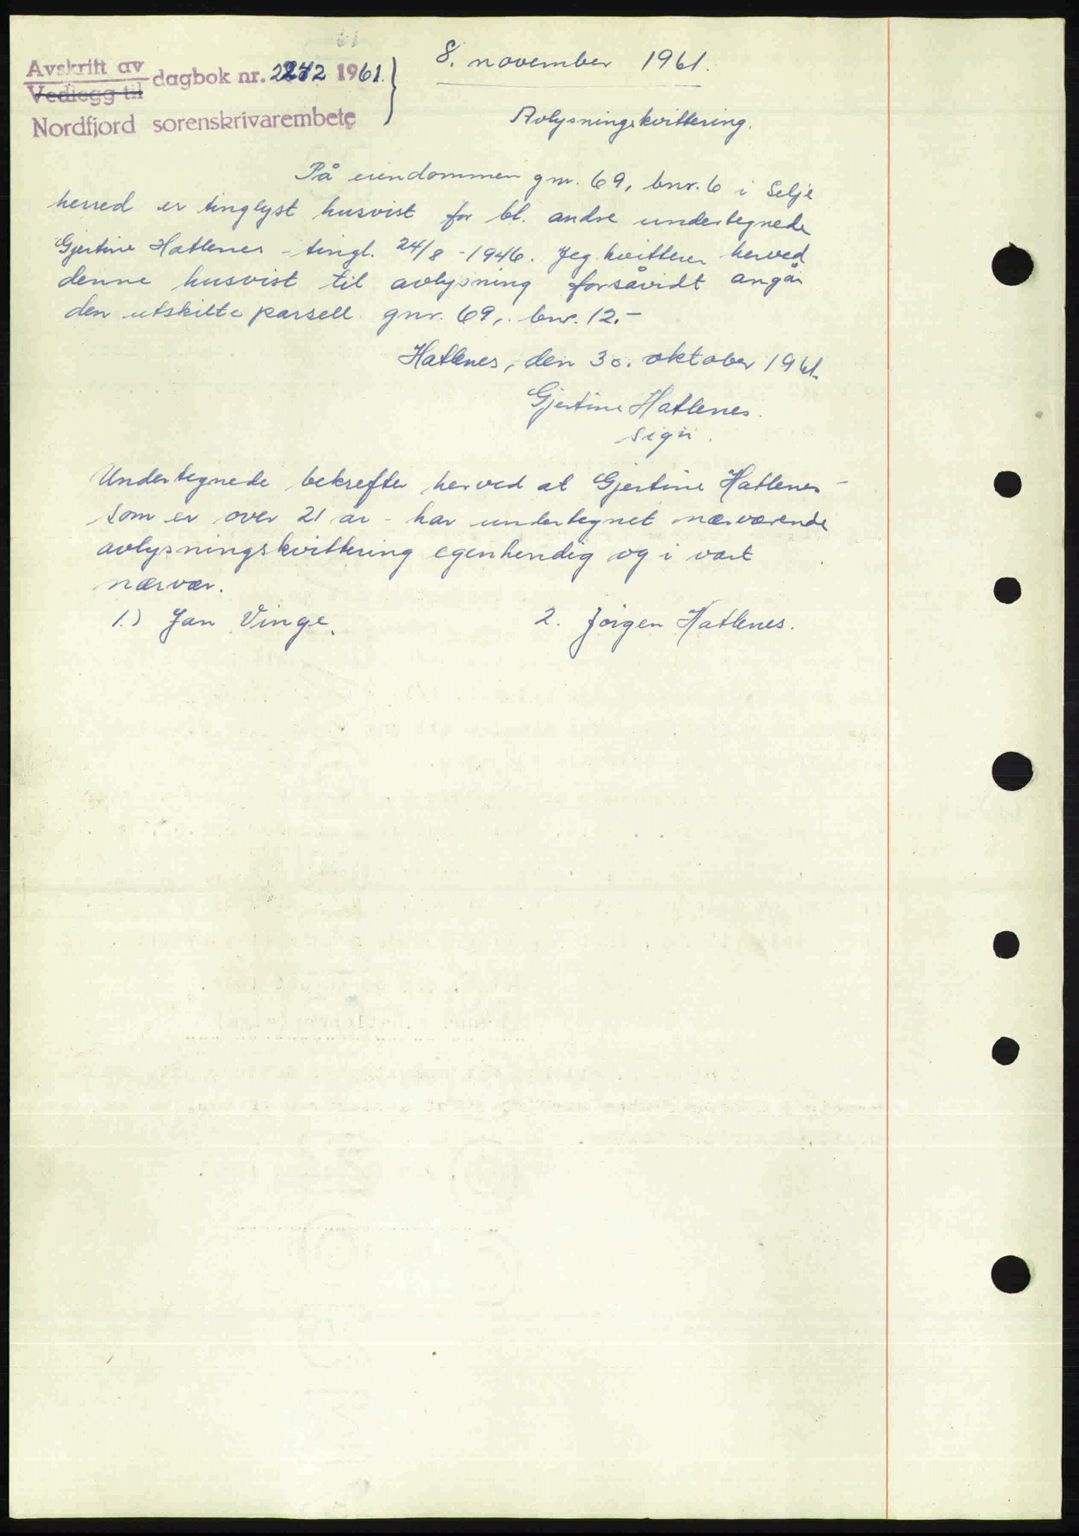 Avskrift av
Vedlegg til
dagbok nr. 2272 1961.
Nordfjord sorenskrivarembete
8. november 1961.
Avlysningskvittering.
På eiendommen gnr. 69, bnr. 6 i Selje
herred er tinglyst husvist for bl. andre undertegnede
Gjertine Hatlenes - tingl. 24/8 - 1946. Jeg kvitterer herved
denne husvist til avlysning forsåvidt angår
den utskilte parsell gnr. 69, bnr. 12.-
Hatlenes, den 30. oktober 1961.
Gjertine Hatlenes.
sign.
Undertegnede bekrefter herved at Gjertine Hatlenes -
som er over 21 år - har undertegnet nærværende
avlysningskvittering egenhendig og i vårt
nærvær.
1.) Jan Vinge.
2. Jørgen Hatlenes.